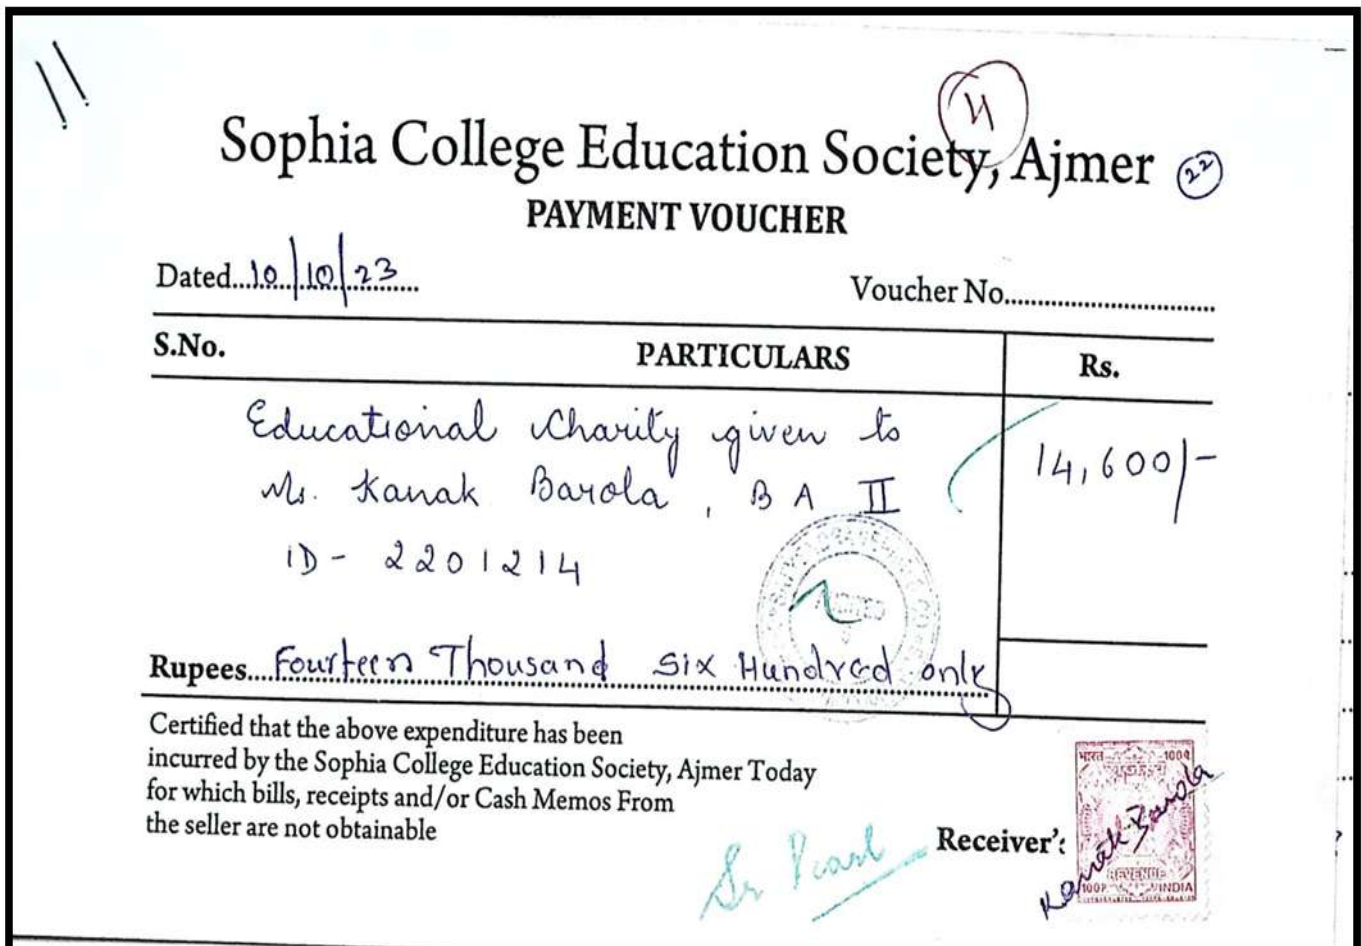 11
Sophia College Education Society, Ajmer
22
PAYMENT VOUCHER
Dated...10/10/23......
Voucher No..............................
S.No. PARTICULARS Rs.
Educational Charity given to
Ms. Kanak Barola, B A II
14,600/-
ID - 2201214
Rupees....Fourteen Thousand Six Hundred only
Certified that the above expenditure has been
incurred by the Sophia College Education Society, Ajmer Today
for which bills, receipts and/or Cash Memos From
the seller are not obtainable
Sr Pearl
Receiver's
भारत 100P
Kanak Barola
REVENUE
100P. INDIA